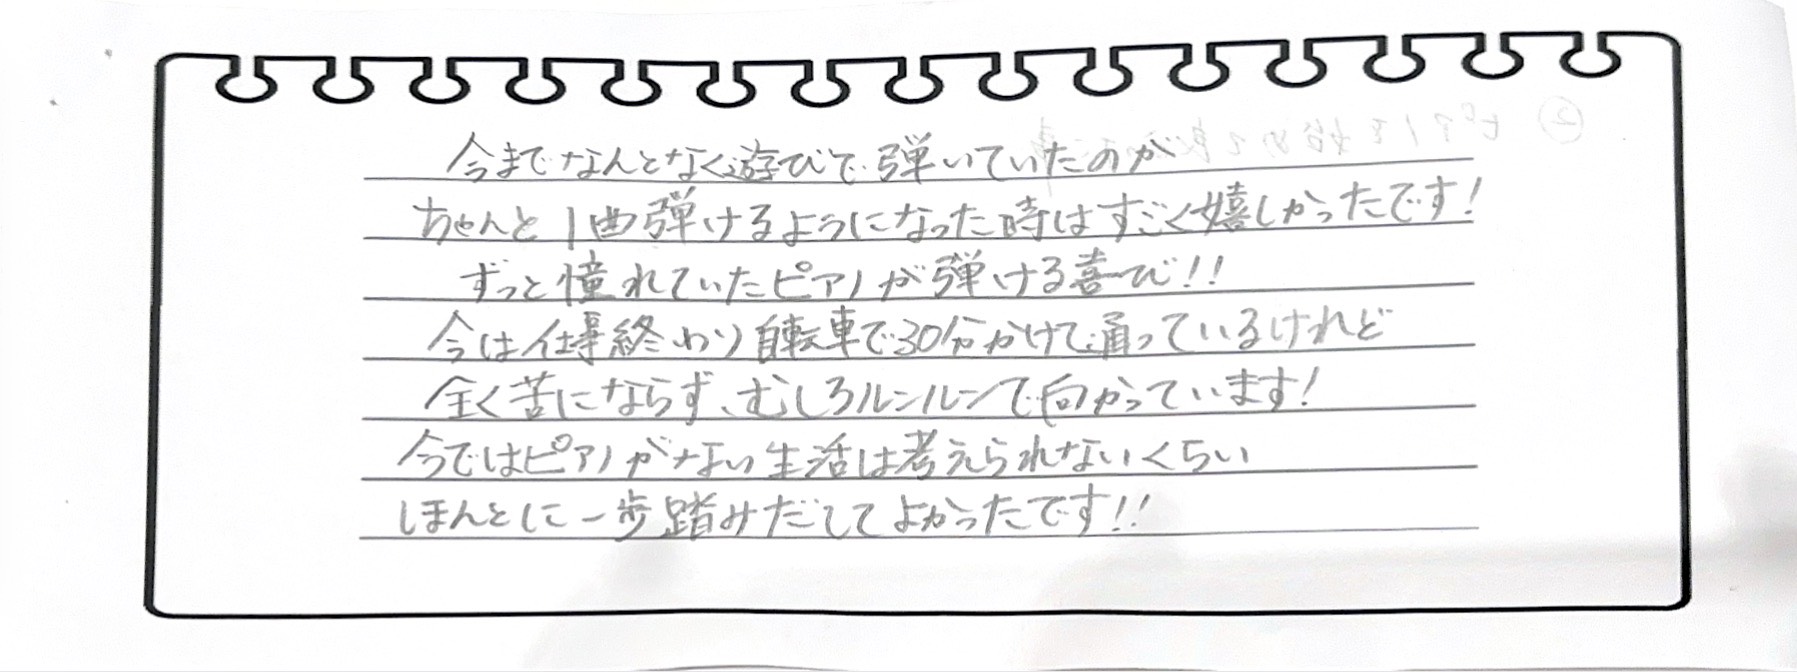 今までなんとなく遊びで弾いていたのが
ちゃんと1曲弾けるようになった時はすごく嬉しかったです!
ずっと憧れていたピアノが弾ける喜び!!
今は仕事終わり自転車で30分かけて通っているけれど
全く苦にならず、むしろルンルンで向かっています!
今ではピアノがない生活は考えられないくらい
ほんとに一歩踏みだしてよかったです!!